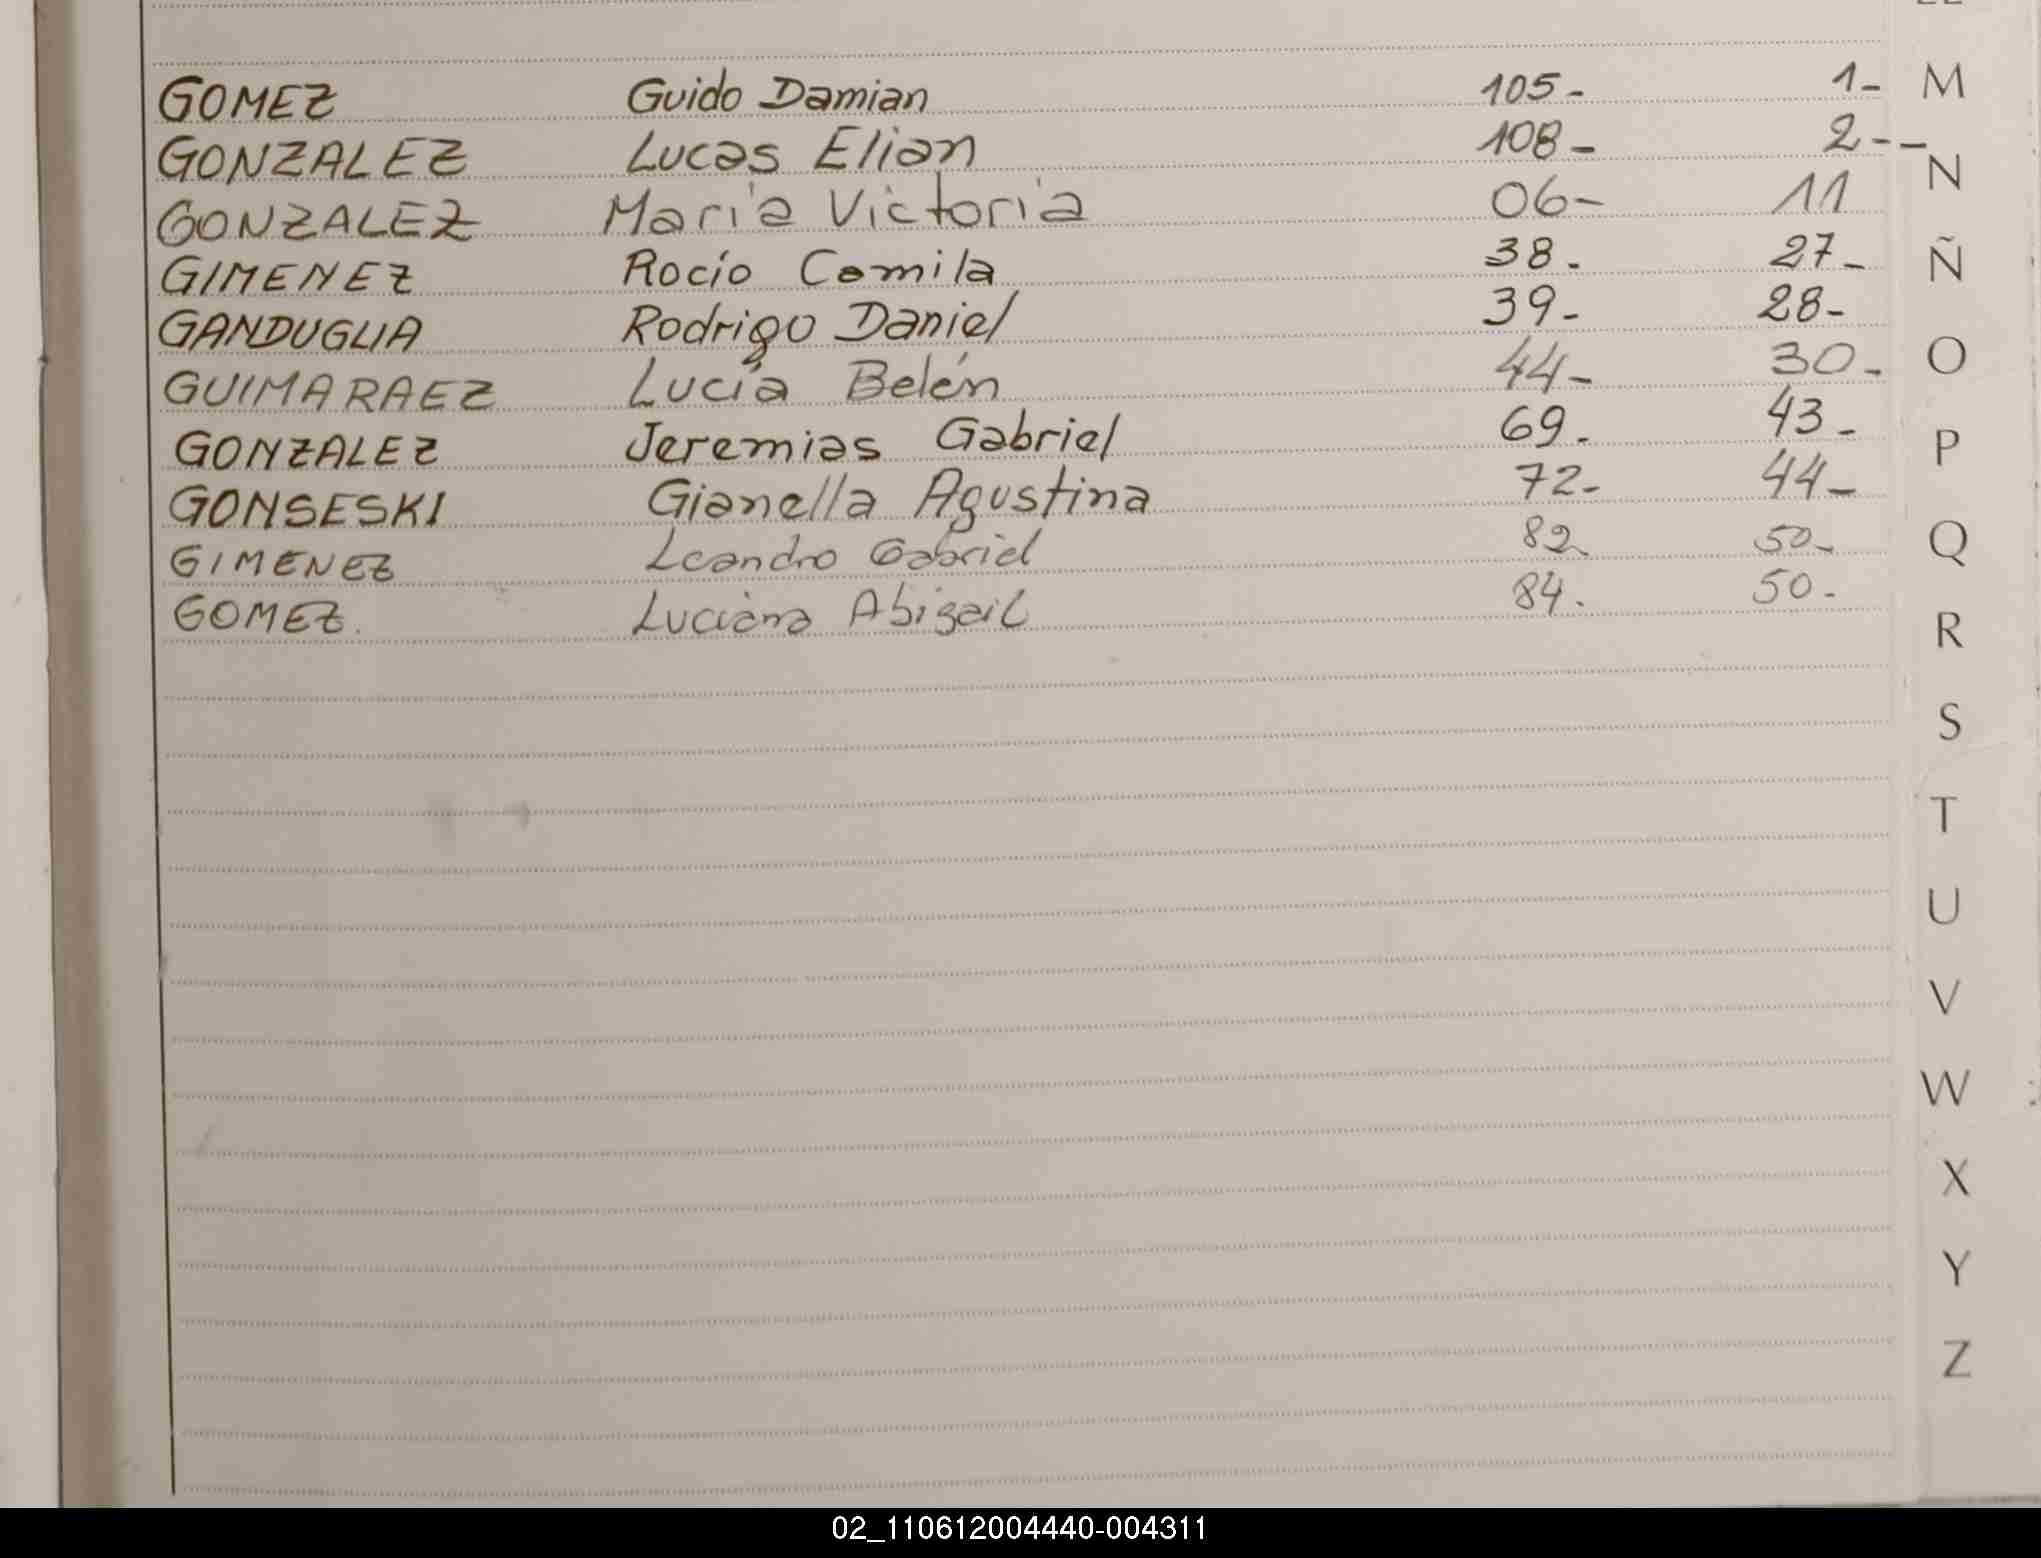 GOMEZ Guido Damian 105- 1-
GONZALEZ Lucas Elian 108- 2--
GONZALEZ Maria Victoria 06- 11
GIMENEZ Rocío Camila 38. 27-
GANDUGLIA Rodrigo Daniel 39- 28-
GUIMARAEZ Lucía Belén 44- 30-
GONZALEZ Jeremias Gabriel 69. 43-
GONSESKI Gianella Agustina 72- 44-
GIMENEZ Leandro Gabriel 82- 50-
GOMEZ. Luciana Abigail 84. 50-
M
N
Ñ
O
P
Q
R
S
T
U
V
W
X
Y
Z
02_110612004440-004311